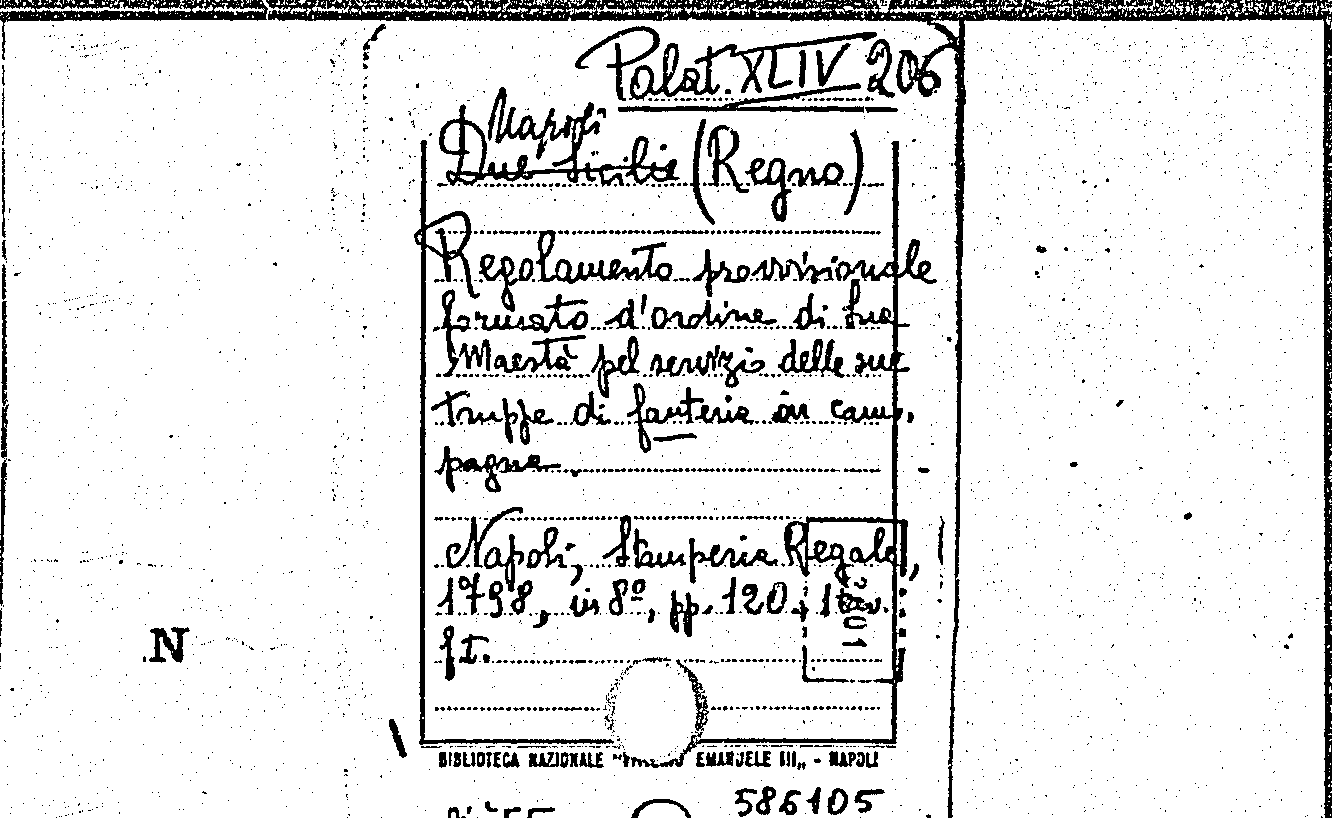 Palat. XLIV 206
Napoli
Due Sicilie (Regno)
Regolamento provvisionale
formato d'ordine di Sua
Maestà pel servizio delle sue
truppe di fanteria in cam-
pagna.
Napoli, Stamperia Regale,
1798, in 8º, pp. 120. 1 tav.
f.t.
N
BIBLIOTECA NAZIONALE "VITTORIO EMANUELE III„ - NAPOLI
586105